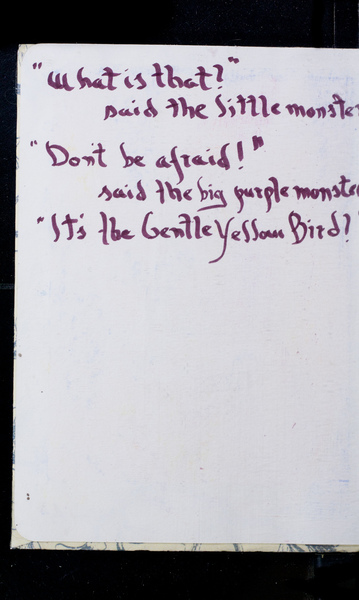 "What is that?"
said the little monster
"Don't be afraid!"
said the big purple monster
"It's the Gentle Yellow Bird!